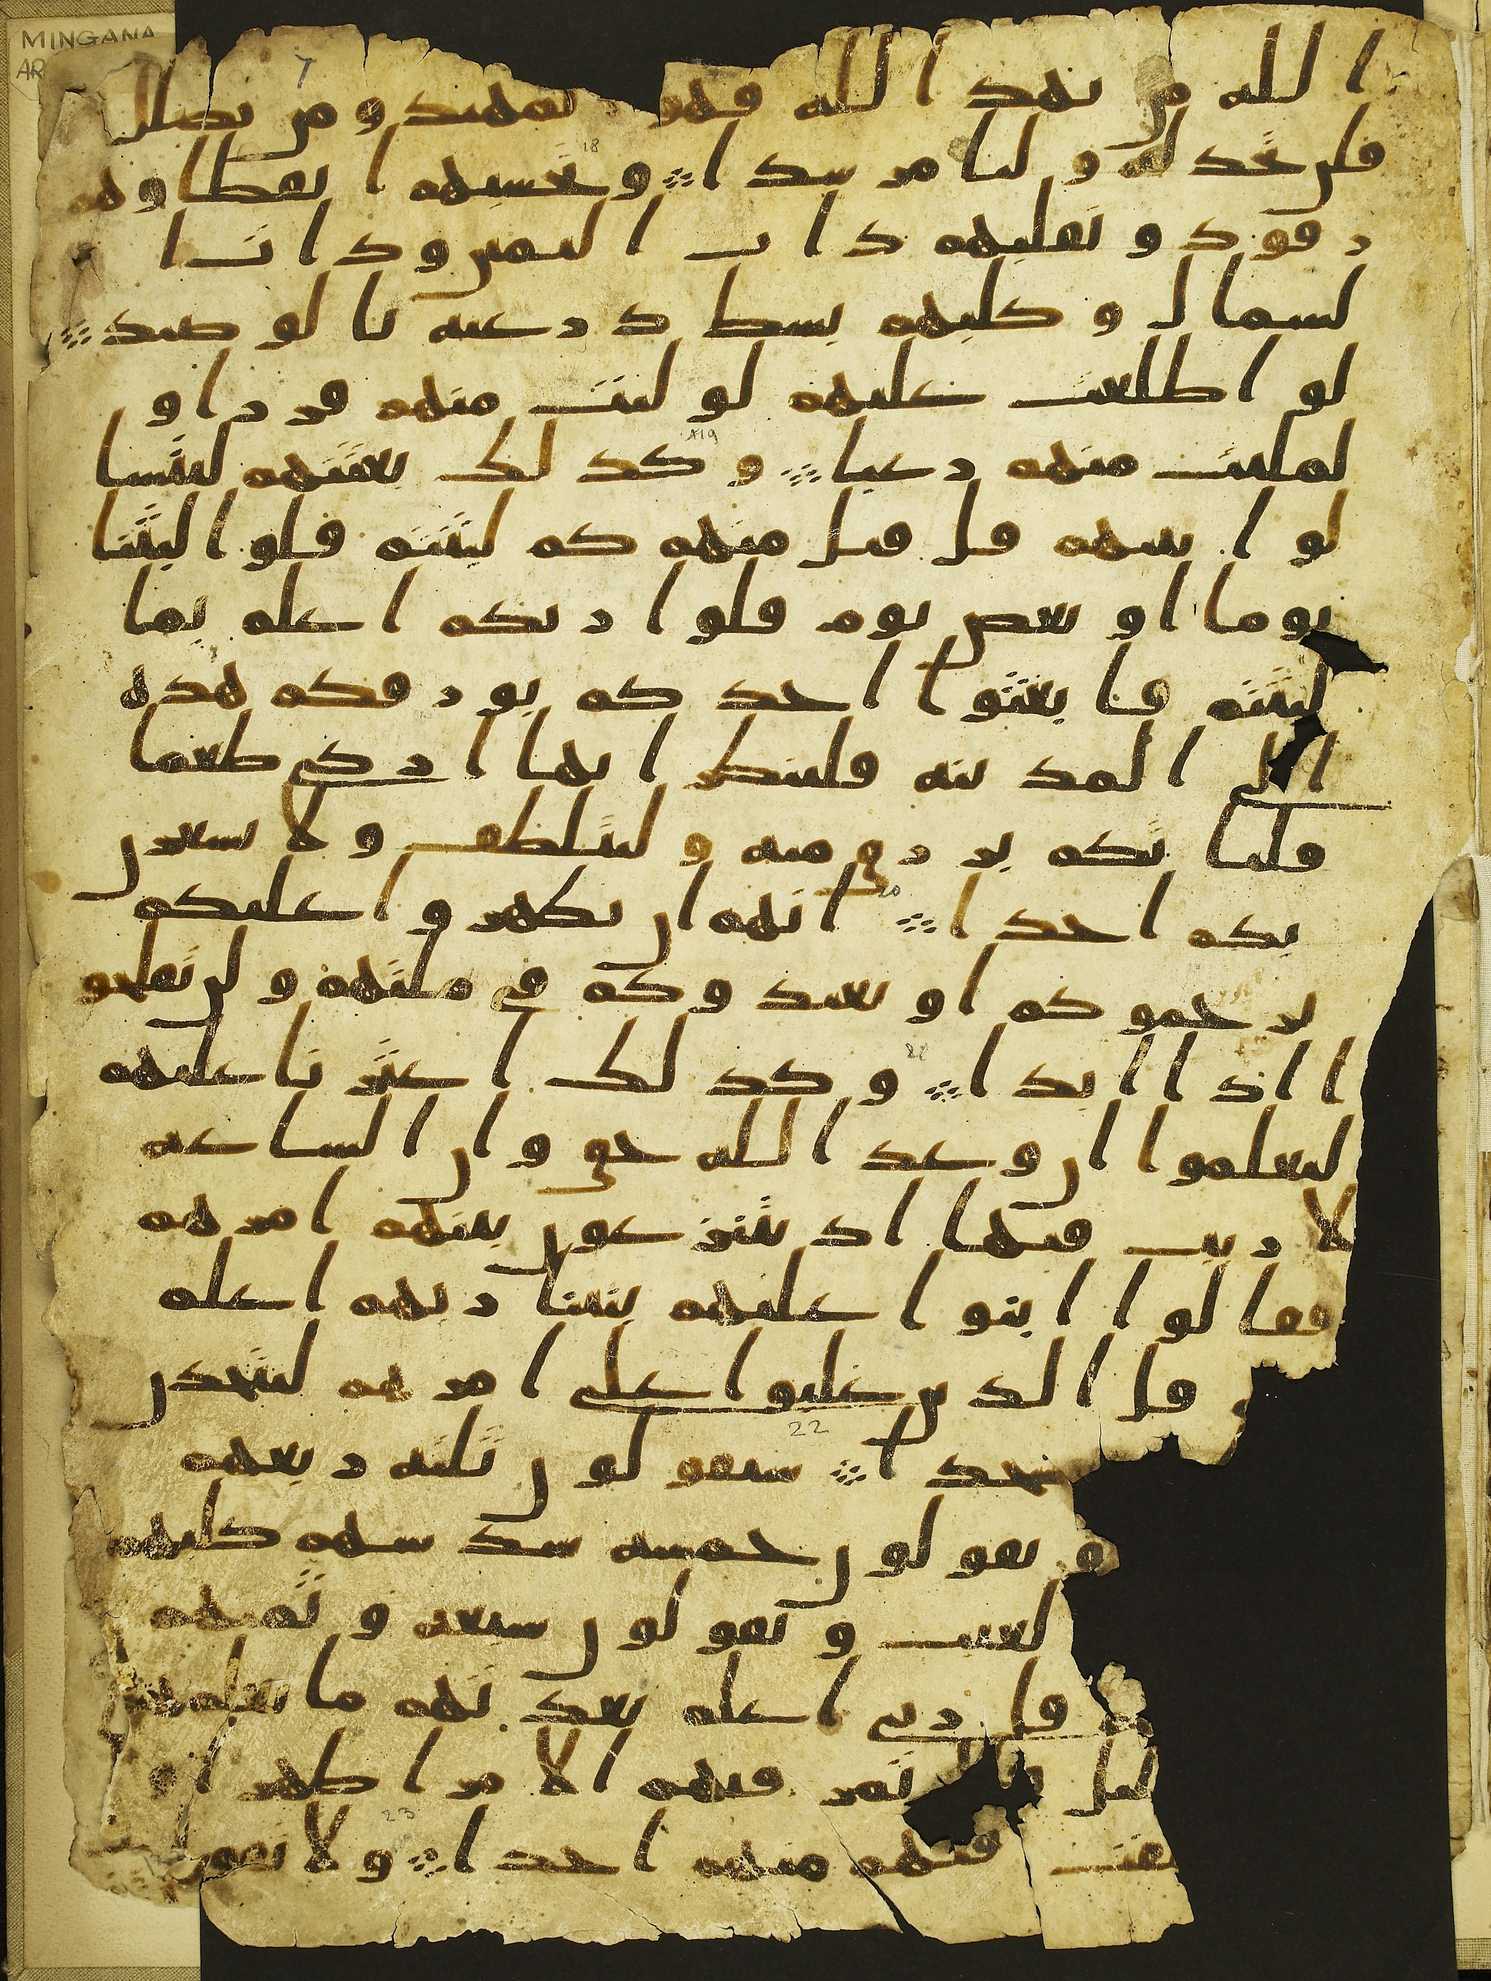 MINGANA
AR
7
الله من يهد الله فهو المهتد ومن يضلل
فلن تجد له وليا مرشدا ۞ وتحسبهم ايقظا وهم
رقود ونقلبهم ذات اليمين وذات ا
لشمال وكلبهم بسط ذرعيه بالوصيد ۞
لو اطلعت عليهم لوليت منهم فررا و
لملئت منهم رعبا ۞ وكذلك بعثنهم ليتسا
لوا بينهم قل قيل منهم كم لبثتم قلوا لبثنا
يوما او بعض يوم قلوا ربكم اعلم بما
لبثتم فابعثوا احدكم بورقكم هذه
الى المدينه فلينظر ايها ازكى طعما
فلياتكم برزق منه وليتلطف ولا يشعرن
بكم احدا ۞ انهم ان يظهروا عليكم
يرجموكم او يعيدوكم في ملتهم ولن تفلحو
ا اذا ابدا ۞ وكذلك اعثرنا عليهم
ليعلموا ان وعد الله حق وان الساعه
لا ريب فيها اذ يتنزعون بينهم امرهم
فقالوا ابنوا عليهم بنينا ربهم اعلم
قل الذين غلبوا على امرهم لنتخذن
مسجدا ۞ سيقولون ثلثه ربعهم
ويقولون خمسه سدسهم كلبهم
لغيب ويقولون سبعه وثمنهم
قل ربي اعلم بعدتهم ما يعلمهم
ليل تمر فيهم الا مرا ظهرا و
فيهم منهم احدا ۞ ولا تقولن